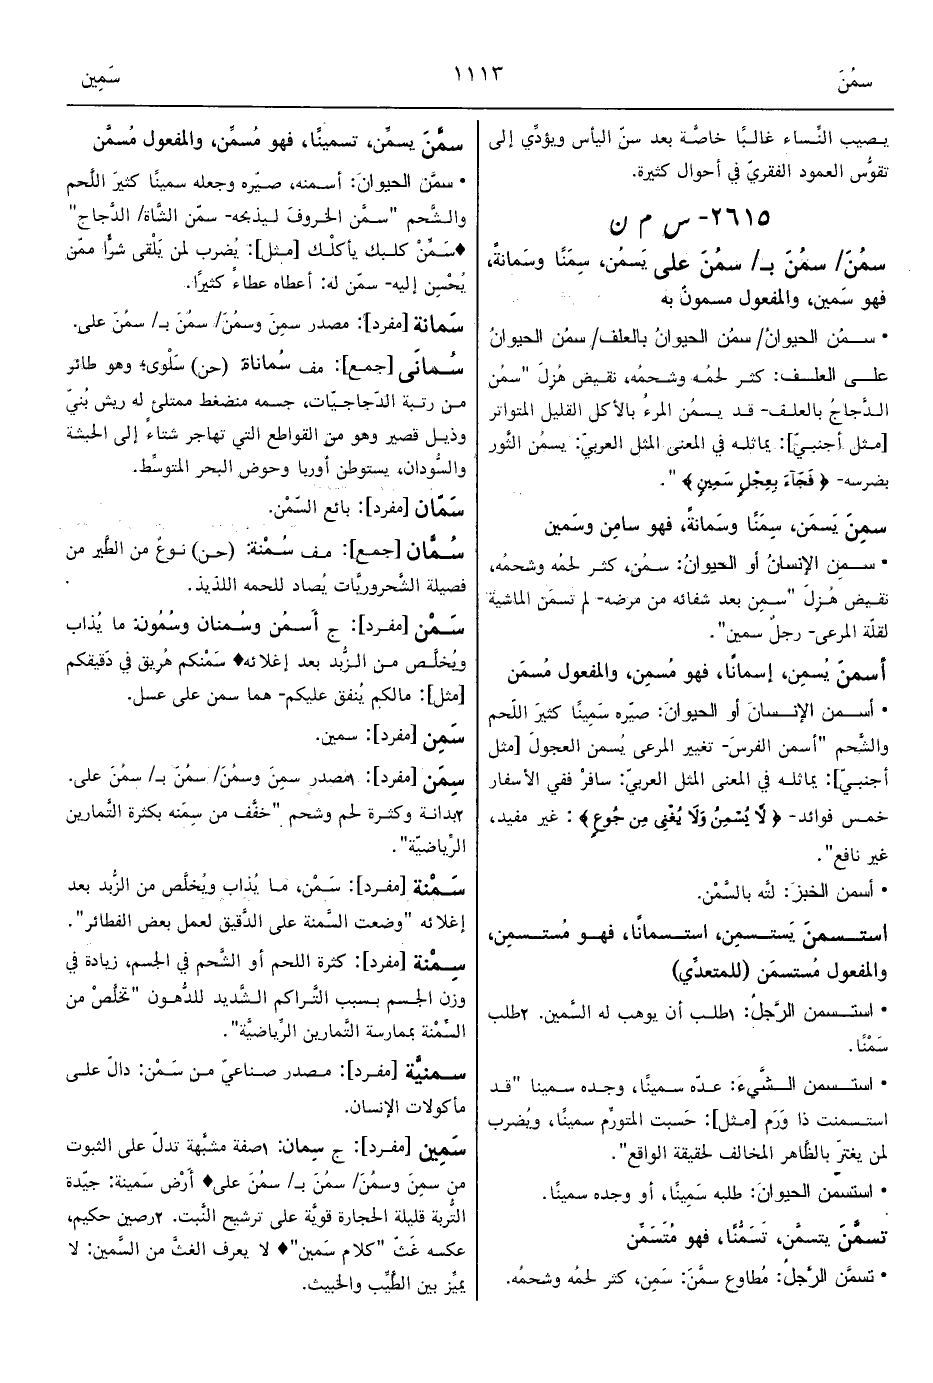 سمُنَ
١١١٣
سَمِين
يصيب النِّساء غالبًا خاصَّة بعد سنّ اليأس ويؤدِّي إلى
تقوُّس العمود الفقريّ في أحوال كثيرة.
٢٦١٥- س م ن
سمُنَ/ سمُنَ بـ/ سمُنَ على يَسمُن، سِمَنًا وسَمانةً،
فهو سَمين، والمفعول مسمونٌ به
• سـمُن الحيوانُ/ سمُن الحيوانُ بالعلف/ سمُن الحيوانُ
علـى العلـف: كثـر لحمُه وشحمُه، نقيـض هُزِلَ "سمُن
الـدَّجاجُ بالعلف- قـد يـسمُن المرءُ بالأكل القليل المتواتر
[مثـل أجنبـيّ]: يماثلـه في المعنى المثل العربيّ: يسمُن الثَّور
بضرسه- ﴿ فَجَآءَ بِعِجْلٍ سَمِينٍ ﴾ ".
سمِنَ يَسمَن، سِمَنًا وسَمانةً، فهو سامِن وسَمين
• سـمِن الإنسانُ أو الحيوانُ: سمُن، كثـر لحمُه وشحمُه،
نقـيض هُـزِلَ "سـمِن بعد شفائه من مرضه- لم تسمَن الماشية
لقلّة المرعى- رجلٌ سمين".
أسمنَ يُسمِن، إسمانًا، فهو مُسمِن، والمفعول مُسمَن
• أسـمن الإنـسانَ أو الحيوانَ: صيَّره سَمِينًا كثيرَ اللَّحم
والشَّحم "أسمن الفرسَ- تغيير المرعى يُسمن العجولَ [مثل
أجنبيّ]: يماثلـه في المعنى المثل العربيّ: سافرْ ففي الأسفار
خمـس فوائد- ﴿ لَا يُسْمِنُ وَلَا يُغْنِي مِن جُوعٍ ﴾ : غير مفيد،
غير نافع".
• أسمن الخبزَ: لتَّه بالسَّمْن.
استـسمنَ يَستـسمِن، استـسمانًا، فهـو مُستـسمِن،
والمفعول مُستسمَن (للمتعدِّي)
• استـسمن الرَّجلُ: ١طلـب أن يوهب له السَّمين. ٢طلب
سَمْنًا.
• استـسمن الـشَّيءَ: عـدّه سمينًا، وجـده سمينا "قـد
استـسمنت ذا وَرَم [مثل]: حَسبت المتورِّم سمينًا، ويُضرب
لمن يغترّ بالظَّاهر المخالف لحقيقة الواقع".
• استسمن الحيوانَ: طلبه سَمِينًا، أو وجده سمينًا.
تسمَّنَ يتسمَّن، تَسَمُّنًا، فهو مُتَسَمِّن
• تسمَّن الرَّجلُ: مُطاوع سمَّنَ: سَمِن، كثر لحمُه وشحمُه.
سمَّنَ يسمِّن، تسمينًا، فهو مُسمِّن، والمفعول مُسمَّن
• سمَّن الحيوانَ: أسمنه، صيَّره وجعله سمينًا كثيرَ اللَّحم
والشَّحم "سـمَّن الخروفَ لـيذبحَه- سمّن الشَّاةَ/ الدَّجاجَ"
♦سَـمِّنْ كلـبك يأكلْـك [مـثل]: يُضرب لمن يَلْقى شرًّا ممّن
يُحْسِن إليه- سمّن له: أعطاه عطاءً كثيرًا.
سَمانة [مفرد]: مصدر سمِنَ وسمُنَ/ سمُنَ بـ/ سمُنَ على.
سُـمانَى [جمع]: مف سُماناة: (حن) سَلْوى؛ وهو طائر
مـن رتـبة الدَّجاجيّات، جسمه منضغط ممتلئ له ريش بُنيّ
وذيـل قصير وهو من القواطع التي تهاجر شتاءً إلى الحبشة
والسُّودان، يستوطن أوربا وحوض البحر المتوسِّط.
سَمّان [مفرد]: بائع السَّمْن.
سُـمَّان [جمع]: مـف سُـمْنة: (حـن) نـوعٌ من الطَّير من
فصيلة الشَّحروريَّات يُصاد للحمه اللذيذ.
سَـمْن [مفـرد]: ج أسـمُن وسُـمنان وسُمُون: ما يُذاب
ويُخلَّـص مـن الـزُّبد بعد إغلائه♦ سَمْنكم هُريق في دَقيقكم
[مثل]: مالكم يُنفق عليكم- هما سمن على عسل.
سَمِن [مفرد]: سمين.
سِمَن [مفرد]: ١مصدر سمِنَ وسمُنَ/ سمُنَ بـ/ سمُنَ على.
٢بدانـة وكثـرة لحم وشحم "خفَّف من سِمَنه بكثرة التَّمارين
الرِّياضيَّة".
سَـمْنة [مفـرد]: سَـمْن، مـا يُذاب ويُخلَّص من الزُّبد بعد
إغلائه "وضعت السَّمنة على الدَّقيق لعمل بعض الفطائر".
سِـمْنة [مفرد]: كثرة اللحم أو الشَّحم في الجسم، زيادة في
وزن الجـسم بـسبب التَّـراكم الـشَّديد للدُّهون "تخلَّصْ من
السِّمْنة بممارسة التَّمارين الرِّياضيَّة".
سـمنيَّة [مفـرد]: مـصدر صـناعيّ مـن سَـمْن: دالّ علـى
مأكولات الإنسان.
سَمِين [مفـرد]: ج سِمان: ١صفة مشبَّهة تدلّ على الثبوت
من سمِنَ وسمُنَ/ سمُنَ بـ/ سمُنَ على♦ أرضٌ سَمينة: جيّدة
التُّربة قليلة الحجارة قويَّة على ترشيح النَّبت. ٢رصين حكيم،
عكسه غَثّ "كلام سَمين"♦ لا يعرف الغثّ من السَّمين: لا
يميِّز بين الطَّيِّب والخبيث.